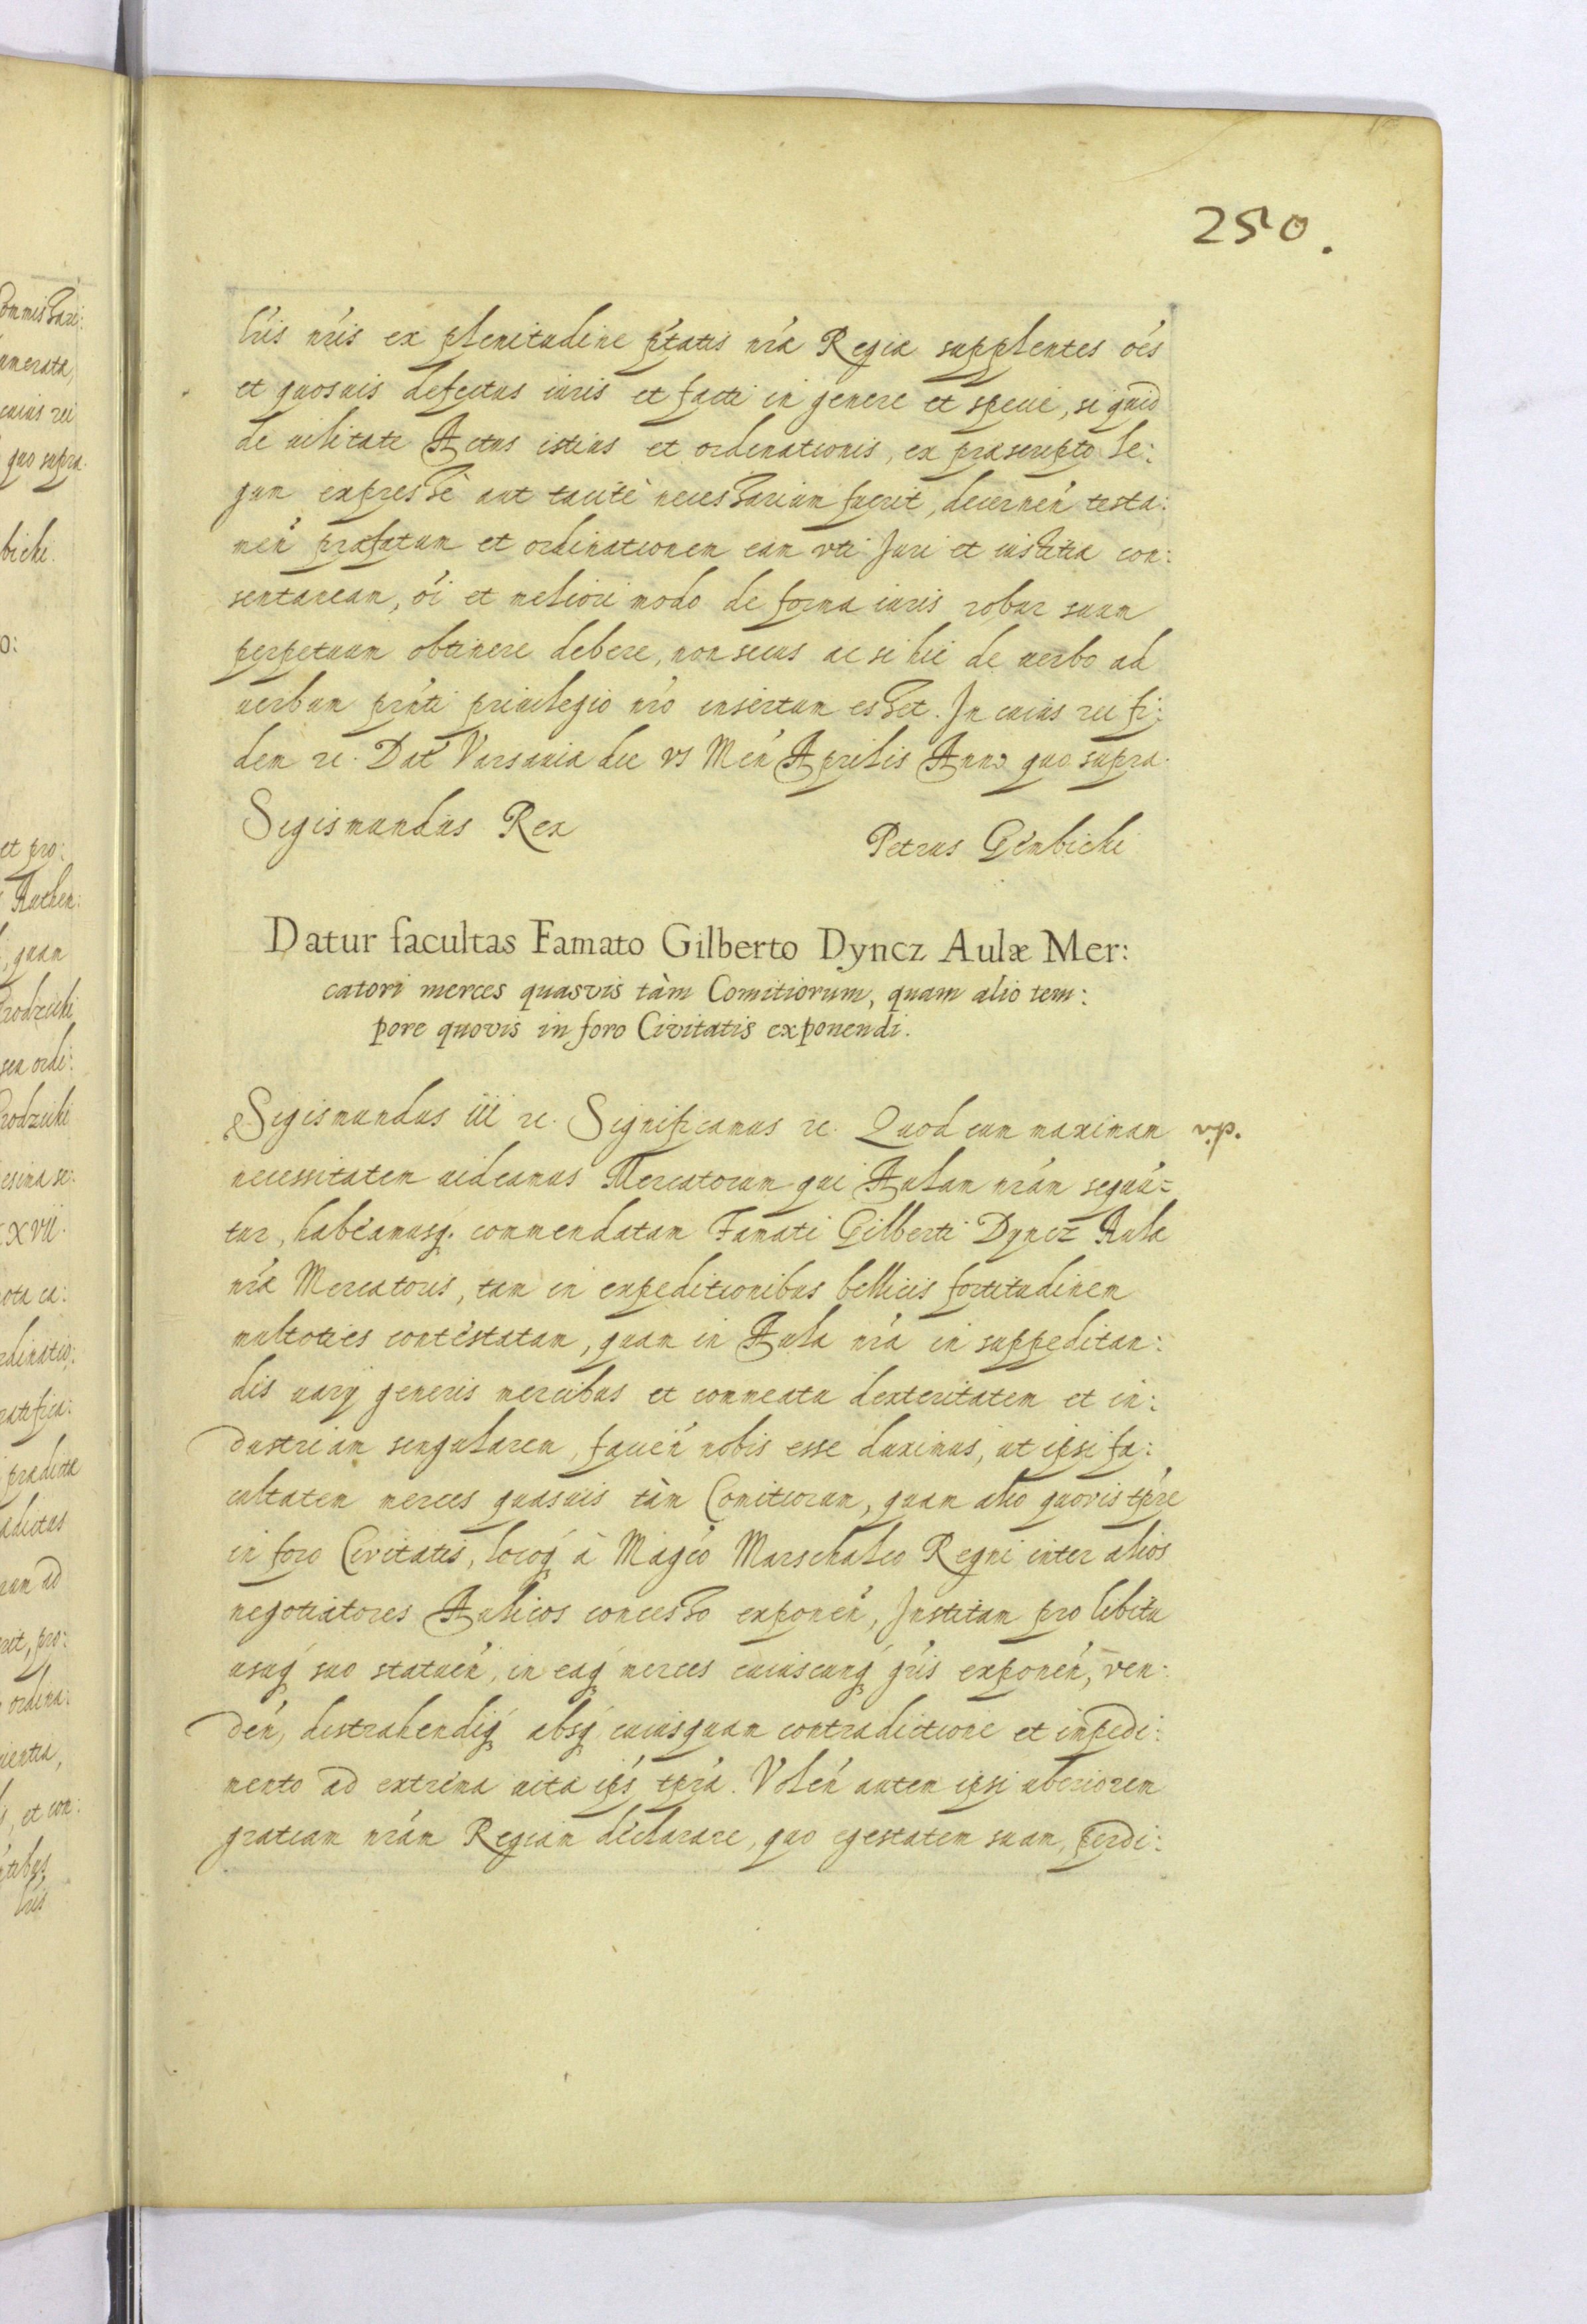 250.
lr̃is nr̃is ex plenitudine ptãtis nr̃æ Regiæ supplentes oẽs
et quosuis defectus iuris et facti in genere et specie, si quid
de utilitate Actus istius et ordinationis, ex præscripto le:
gum expressè aut tacitè necessarium fuerit, decerneñ testa:
meñ præfatum et ordinationem eam uti Juri et iustitiæ con:
sentaneam, oĩ et meliori modo de forma iuris robur suum
perpetuum obtinere debere, non secus ac si hic de uerbo ad
uerbum prñti priuilegio nr̃o insertum esset. In cuius rei fi:
dem etc. Dat̃ Varsauiæ die VI Meñ Aprilis Anno quo supra.
Sigismundus Rex
Petrus Gembicki
Datur facultas Famato Gilberto Dyncz Aulæ Mer:
catori merces quasvis tàm Comitiorum, quam alio tem:
pore quovis in foro Civitatis exponendi.
Sigismundus iii etc. Significamus etc. Quod cum maximam
v.p.
necessitatem uideamus Mercatorum qui Aulam nr̃am sequũ=
tur, habeamusq. commendatam Famati Gilberti Dyncz Aulæ
nr̃æ Mercatoris, tam in expeditionibus bellicis fortitudinem
multoties contestatam, quam in Aula nr̃a in suppeditan:
dis uarij generis mercibus et commeatu dexteritatem et in:
dustriam singularem, facień nobis esse duximus, ut ipsi fa:
cultatem merces quasuis tàm Comitiorum, quam alio quovis tpr̃e
in foro Civitatis, locoq à Magco Marschalco Regni inter alios
negotiatores Aulicos concesso exponeñ, Institam pro libitu
usuq suo statueñ, in eaq merces cuiuscunq gr̃is exponeñ, ven:
deñ, distrahendiq absq cuiusquam contradictione et impedi:
mento ad extrema uitæ ips̃ tpr̃a. Voleñ autem ipsi uberiorem
gratiam nr̃am Regiam declarare, quo egestatem suam, perdi: